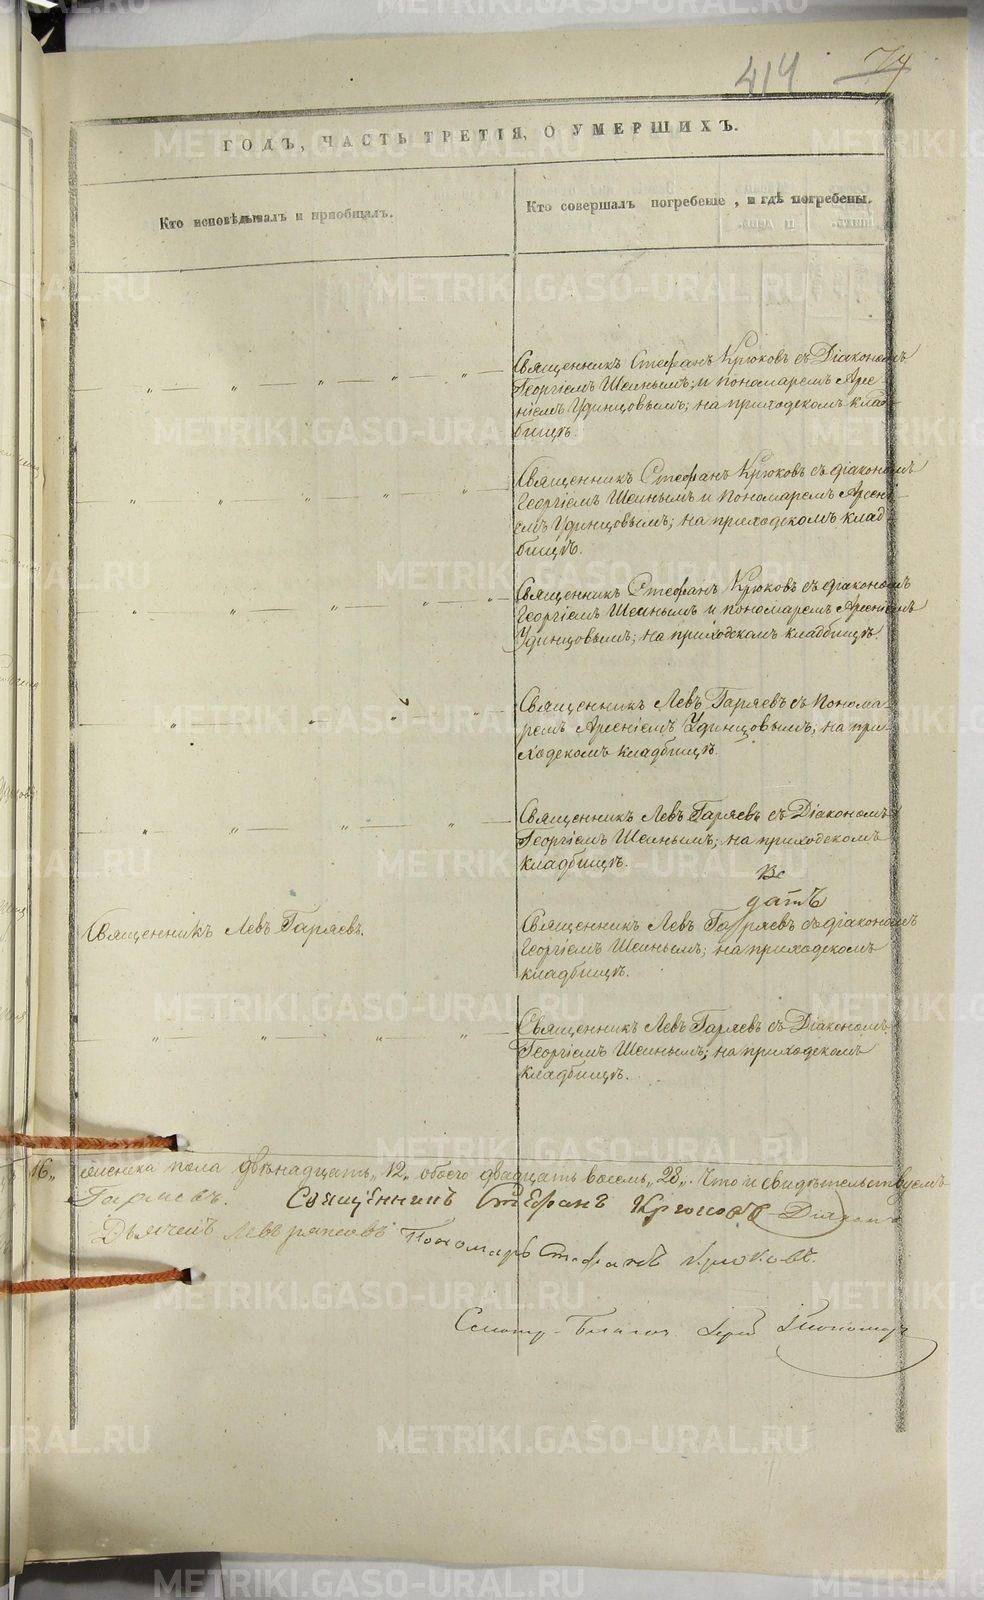 414 74
ГОДЪ, ЧАСТЬ ТРЕТІЯ, О УМЕРШИХЪ.
Кто исповѣдывалъ и пріобщалъ.
Кто совершалъ погребеніе, и гдѣ погребены.
Священникъ Стефанъ Крюковъ съ Діакономъ
Георгіемъ Шеинымъ; и пономаремъ Арсе
ніемъ Удинцовымъ; на приходскомъ клад
бищѣ.
Священникъ Стефанъ Крюковъ съ діакономъ
Георгіемъ Шеинымъ и Пономаремъ Арсені
емъ Удинцовымъ; на приходскомъ клад
бищѣ.
Священникъ Стефанъ Крюковъ съ діакономъ
Георгіемъ Шеинымъ и пономаремъ Арсеніемъ
Удинцовымъ; на приходскомъ кладбищѣ.
Священникъ Левъ Гаряевъ съ Понома
ремъ Арсеніемъ Удинцовымъ; на при
ходскомъ кладбищѣ.
Священникъ Левъ Гаряевъ съ Діакономъ
Георгіемъ Шеинымъ; на приходскомъ
кладбищѣ.
Священникъ Левъ Гаряевъ.
Священникъ Левъ Гаряевъ съ діакономъ
Георгіемъ Шеинымъ; на приходскомъ
кладбищѣ.
Священникъ Левъ Гаряевъ съ Діакономъ
Георгіемъ Шеинымъ; на приходскомъ
кладбищѣ.
16„ женска пола двѣнадцать „12„ обоего двадцать восемь „28„. Что и свидѣтельствуемъ
Гаряевъ. Священникъ Стефанъ Крюковъ Діаконъ
Пономарь Стефанъ Крюковъ.
METRIKI.GASO-URAL.RU